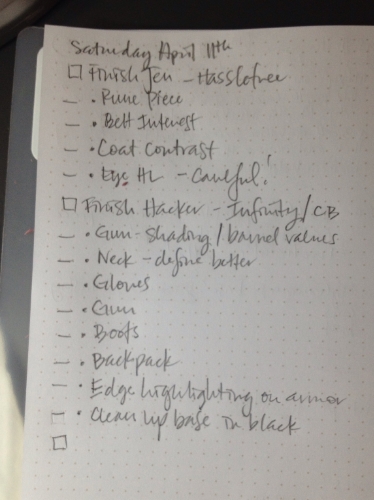 Saturday April 11th
□ Finish Jen - Hasslefree
- • Rune Piece
- • Belt Interest
- • Coat Contrast
- • Eye HL - Careful!
□ Finish Hacker - Infinity/CB
- • Gun - Shading/barrel values
- • Neck - define better
- • Gloves
- • Gun
- • Boots
- • Backpack
- • Edge highlighting on armor
- • Clean up base in black
□